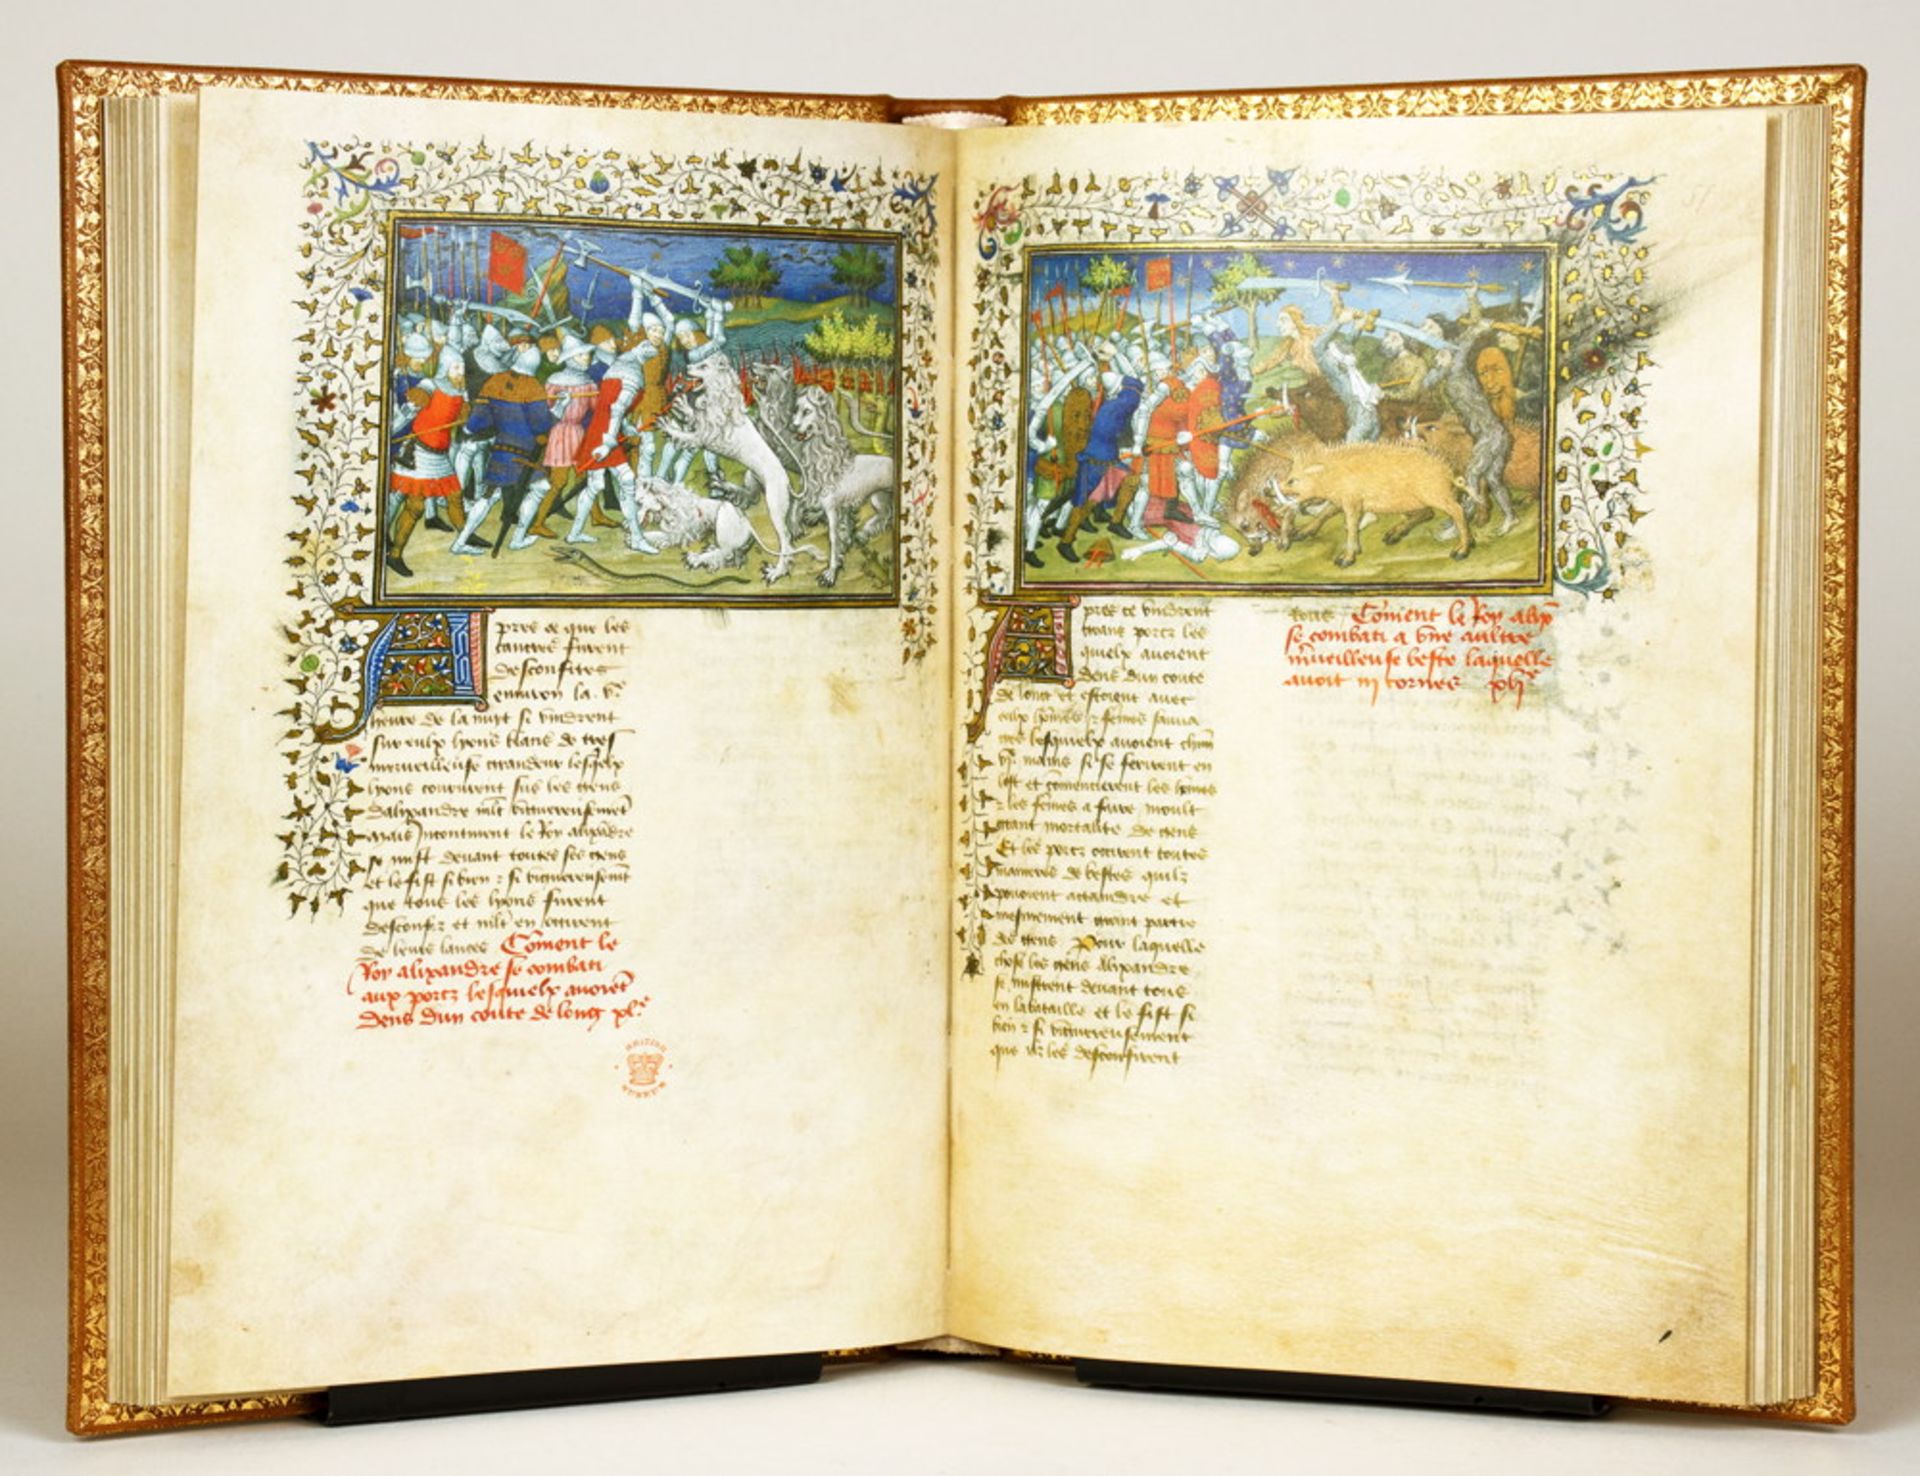 Apres ce que les
cancres furent
desconfites
environ la .ve
heure de la nuit si vindrent
sur eulx lyons blancs de tres
merveilleuse grandeur lesqelx
lyons coururent sus les gens
dalixandre mlt vigureusemet
Mais incontinent le Roy alixandre
se mist devant toutes ses gens
et le fist si bien et si vigureusemt
que tous les lyons furent
desconfiz et mlt en occirent
de leurs lances Coment le
Roy alixandre se combati
aux porcz lesquielx avoiet
dens dun coute de long pl.e
BRITISH
MUSEUM
51
Apres ce vindrent
grans porcz les
quielx avoient
dens dun coute
de long et estoient avec
eulx homes et femes sauva
ges lesquielx avoient chun
vj. mains si se ferirent en
lost et comencierent les homes
et les femes a faire moult
grant mortalite de gens
Et les porcz occirent toutes
manieres de bestes quilz
pouoient attaindre et
mesmement grant partie
de gens Pour laquelle
chose les gens alixandre
se mistrent devant tous
en la bataille et le fist si
bien et si vigureusement
que ilz les desconfirent
tous Coment le Roy alixe
se combati a vne aultre
mveilleuse beste laquelle
avoit iij cornes